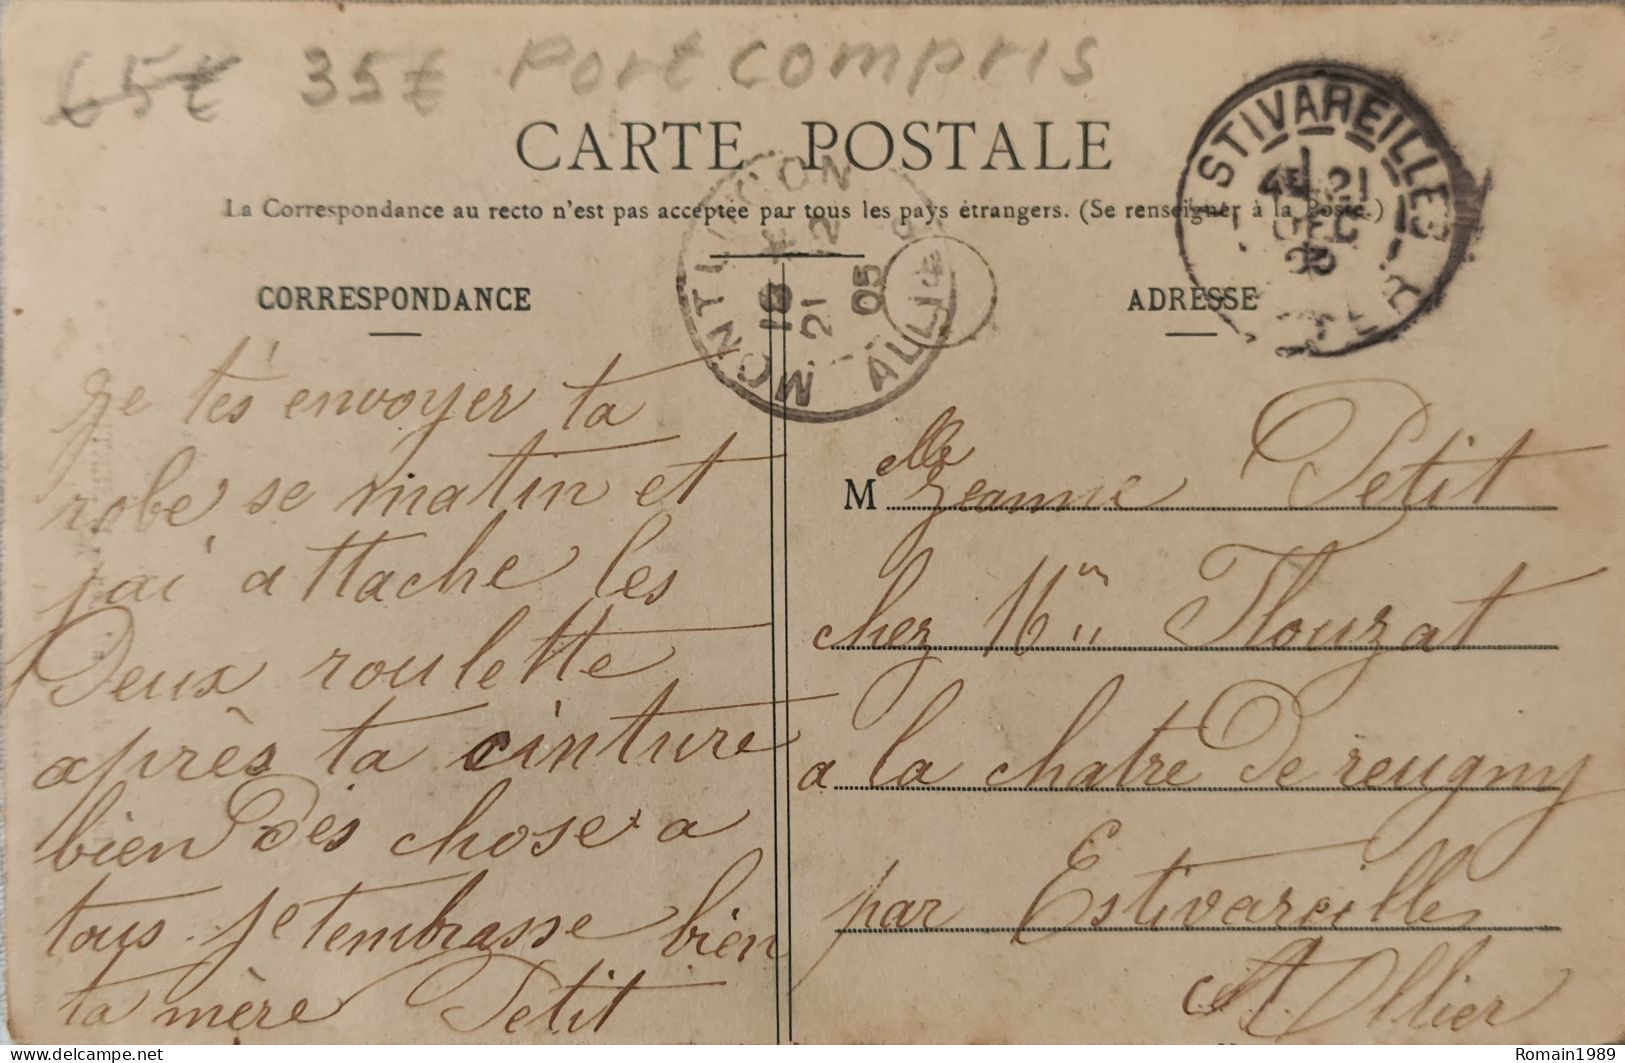 65€ 35€ Port compris
CARTE POSTALE
La Correspondance au recto n'est pas acceptée par tous les pays étrangers. (Se renseigner à la Poste.)
CORRESPONDANCE
ADRESSE
MONTLUÇON
ALLIER
21
05
STIVAREILLES
21
DEC
05
Je tés envoyer ta
robe se matin et
j'ai attache les
Deux roulette
après ta cinture
bien des chose a
tous je tembrasse bien
ta mère Petit
M elle Jeanne Petit
chez Mr Thouzat
a la chatre De reugny
par Estivareilles
Allier
Romain1989